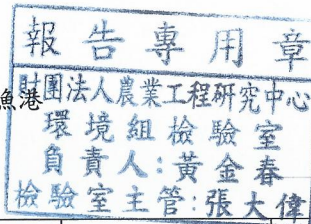 報告專用章
漁港
財團法人農業工程研究中心
環境組檢驗室
負責人:黃金春
檢驗室主管:張大偉